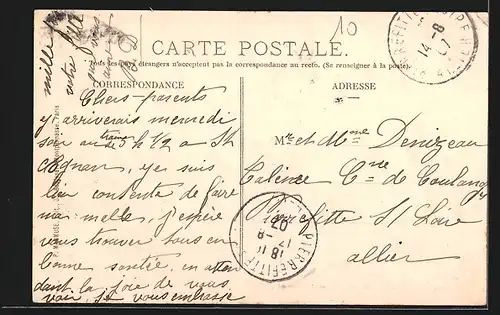 10
CARTE POSTALE.
Tous les pays étrangers n'acceptent pas la correspondance au recto. (Se renseigner à la poste).
CORRESPONDANCE
ADRESSE
Chers parents
y arriverais mercredi
soir au train
de 5 h 1/2 a St
Agnan, je suis
bien contente de faire
ma malle, j'espère
vous trouver tous en
bonne santé, en atten
dant la joie de vous
voir, je vous embrasse
mille
votre fille
Mr et Mme Denizeau
Cne de Coulang
Pierrefitte S/ Loire
allier
14 -8
PIERREFITTE
18 11
17 -8
07